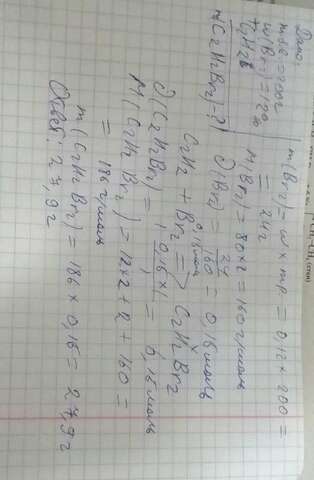 Дано:
m р-ра = 200г
w(Br₂) = 12%
C₂H₂
m(C₂H₂Br₂) - ?
m(Br₂) = w × mр. = 0,12 × 200 =
= 24г
M(Br₂) = 80×2 = 160 г/моль
ν(Br₂) = 24/160 = 0,15 моль
0,15моль
C₂H₂ + Br₂ => C₂H₂Br₂
ν(C₂H₂Br₂) = 0,15×1/1 = 0,15 моль
M(C₂H₂Br₂) = 12×2+2+160 =
= 186 г/моль
m(C₂H₂Br₂) = 186 × 0,15 = 27,9г
Ответ: 27,9г